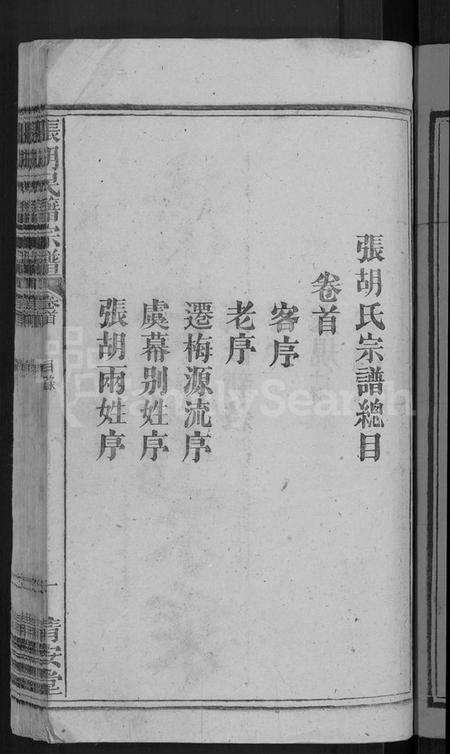 張胡氏宗譜總目
卷首
客序
老序
遷梅源流序
虞幕别姓序
張胡兩姓序
張胡氏宗譜
卷首
目錄
一
清安堂
FamilySearch